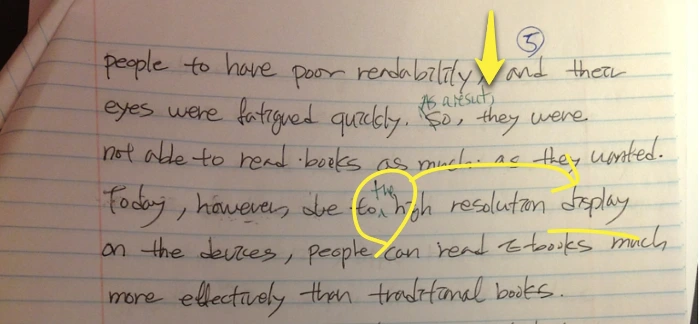 5
people to have poor readability, and their
As a result,
eyes were fatigued quickly. So, they were
not able to read books as much as they wanted.
the
Today, however, due to high resolution display
on the devices, people can read E-books much
more effectively than traditional books.